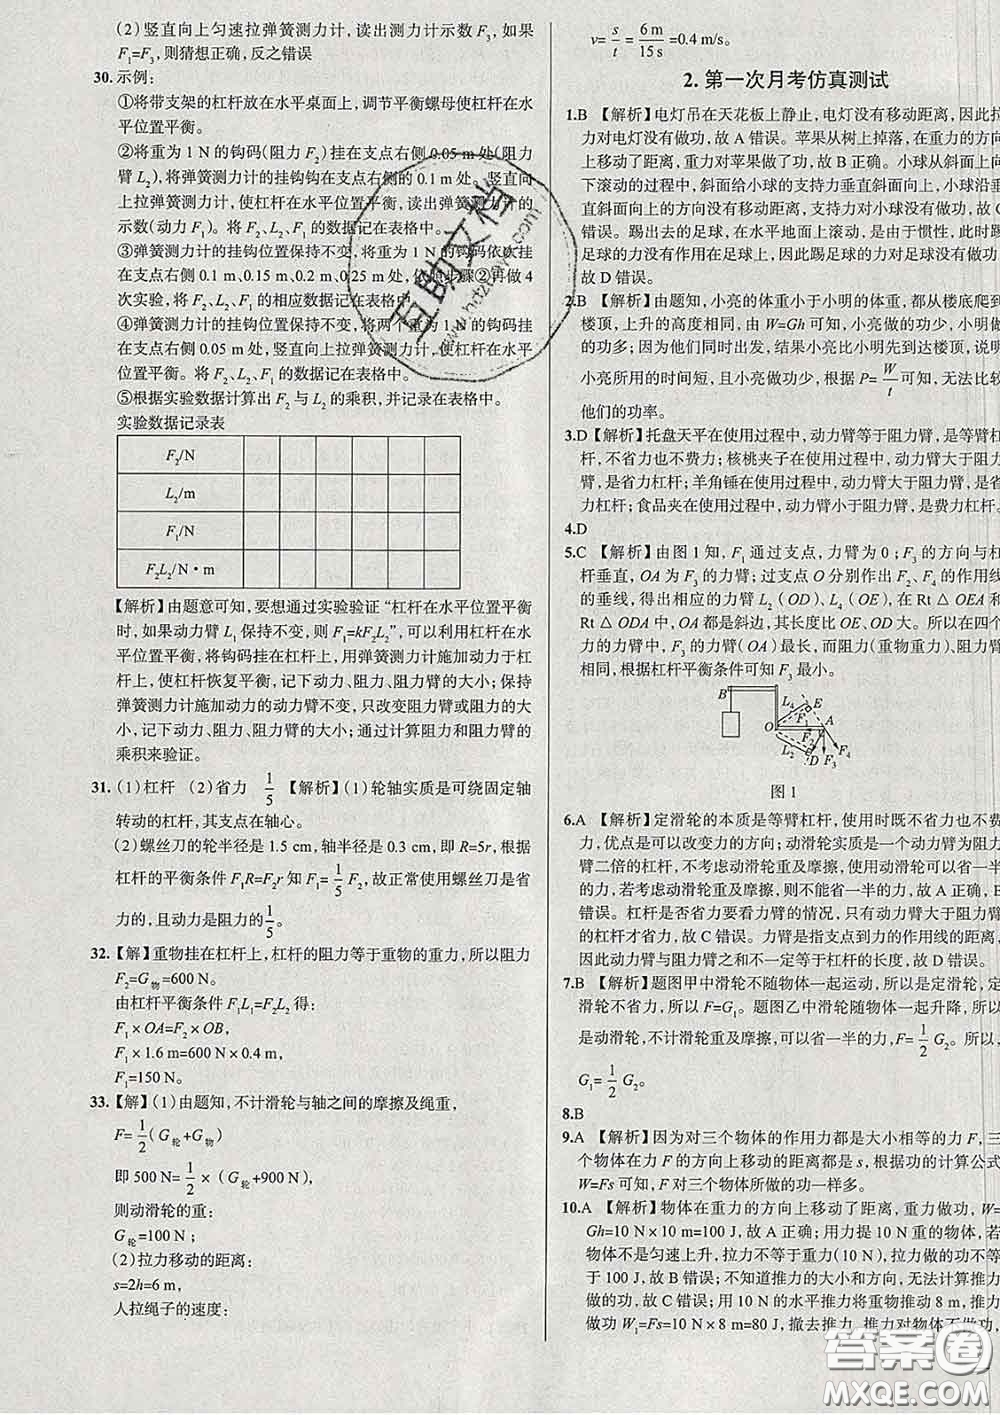 (2)竖直向上匀速拉弹簧测力计,读出测力计示数 F3,如果
F1=F3,则猜想正确,反之错误
30. 示例:
①将带支架的杠杆放在水平桌面上,调节平衡螺母使杠杆在水
平位置平衡。
②将重为 1 N 的钩码(阻力 F2)挂在支点右侧 0.05 m 处(阻力
臂 L2),将弹簧测力计的挂钩钩在支点右侧的 0.1 m 处。竖直向
上拉弹簧测力计,使杠杆在水平位置平衡,读出弹簧测力计的
示数(动力 F1)。将 F2、L2、F1 的数据记在表格中。
③弹簧测力计的挂钩位置保持不变,将重为 1 N 的钩码依次挂
在 0.1 m、0.15 m、0.2 m、0.25 m 处,依照步骤②再做 4
次实验,将 F2、L2、F1 的相应数据记在表格中。
④弹簧测力计的挂钩位置保持不变,将两个重 1 N 的钩码挂在
支点右侧 0.05 m 处,竖直向上拉弹簧测力计,使杠杆在水平位
置平衡。将 F2、L2、F1 的数据记在表格中。
⑤根据实验数据计算出 F2 与 L2 的乘积,并记录在表格中。
实验数据记录表
F2/N
L2/m
F1/N
F2L2/N·m
【解析】由题意可知,要想通过实验验证“杠杆在水平位置平衡
时,如果动力臂 L1 保持不变,则 F1=kF2L2”,可以利用杠杆在水
平位置平衡,将钩码挂在杠杆上,用弹簧测力计施加动力于杠
杆上,使杠杆恢复平衡,记下动力、阻力、阻力臂的大小;保持
弹簧测力计施加动力的动力臂不变,只改变阻力臂或阻力的大
小,记下动力、阻力、阻力臂的大小;通过计算阻力和阻力臂的
乘积来验证。
31. (1)杠杆 (2)省力 1/5 【解析】(1)轮轴实质是可绕固定轴
转动的杠杆,其支点在轴心。
(2)螺丝刀的轮半径是 1.5 cm,轴半径是 0.3 cm,即 R=5r,根据
杠杆的平衡条件 F1R=F2r 知 F1=1/5 F2,故正常使用螺丝刀是省
力的,且动力是阻力的1/5。
32. 【解】重物挂在杠杆上,杠杆的阻力等于重物的重力,所以阻力
F2=G物=600 N。
由杠杆平衡条件 F1L1=F2L2 得:
F1×OA=F2×OB,
F1×1.6 m=600 N×0.4 m,
F1=150 N。
33. 【解】(1)由题知,不计滑轮与轴之间的摩擦及绳重,
F=1/2(G轮+G物)
即 500 N=1/2×(G轮+900 N)
则动滑轮的重:
G轮=100 N;
(2)拉力移动的距离:
s=2h=6 m,
人拉绳子的速度:
v=s/t=6 m/15 s=0.4 m/s。
2. 第一次月考仿真测试
1.B 【解析】电灯吊在天花板上静止,电灯没有移动距离,因此拉
力对电灯没有做功,故 A 错误。苹果从树上掉落,在重力的方向
上移动了距离,重力对苹果做了功,故 B 正确。小球从斜面上向
下滚动的过程中,斜面给小球的支持力垂直斜面向上,小球沿垂
直斜面向上的方向没有移动距离,支持力对小球没有做功,故 C
错误。踢出去的足球,在水平地面上滚动,是由于惯性,此时踢
足球的力没有作用在足球上,因此踢足球的力对足球没有做功,
故 D 错误。
2.B 【解析】由题知,小亮的体重小于小明的体重,都从楼底爬到
楼顶,上升的高度相同,由 W=Gh 可知,小亮做的功少,小明做
的功多;因为他们同时出发,结果小亮比小明先到达楼顶,说明
小亮所用的时间短,且小亮做功少,根据 P=W/t 可知,无法比较
他们的功率。
3.D【解析】托盘天平在使用过程中,动力臂等于阻力臂,是等臂杠
杆,不省力也不费力;核桃夹子在使用过程中,动力臂大于阻力
臂,是省力杠杆;羊角锤在使用过程中,动力臂大于阻力臂,是省
力杠杆;食品夹在使用过程中,动力臂小于阻力臂,是费力杠杆。
4.D
5.C 【解析】由图 1 知,F1 通过支点,力臂为 0;F3 的方向与杠
杆垂直,OA 为 F3 的力臂;过支点 O 分别作出 F2、F4 的作用线
的垂线,得出相应的力臂 L2(OD)、L4(OE),在 Rt △ OEA 和
Rt △ ODA 中,OA 都是斜边,其长度比 OE、OD 大。所以在四个
力的力臂中,F3 的力臂(OA)最长,而阻力(重物重力)、阻力臂
相同,根据杠杆平衡条件可知 F3 最小。
B L4 E O F1 A F2 L2 D F3 F4
图 1
6.A 【解析】定滑轮的本质是等臂杠杆,使用时既不省力也不费
力,优点是可以改变力的方向;动滑轮实质是一个动力臂为阻力
臂二倍的杠杆,不考虑动滑轮重及摩擦,使用动滑轮可以省一半
的力,若考虑动滑轮重及摩擦,则不能省一半的力,故 A 正确,B
错误。杠杆是否省力要看力臂的情况,只有动力臂大于阻力臂
的杠杆才省力,故 C 错误。力臂是指支点到力的作用线的距离,
因此动力臂与阻力臂之和不一定等于杠杆的长度,故 D 错误。
7.B 【解析】题图甲中滑轮不随物体一起运动,所以是定滑轮,定
滑轮不省力,所以 F=G1。题图乙中滑轮随物体一起升降,所以
是动滑轮,不计滑轮重及摩擦,可以省一半的力,F=1/2 G2。所以,
G1=1/2 G2。
8.B
9.A 【解析】因为对三个物体的作用力都是大小相等的力 F,三
个物体在力 F 的方向上移动的距离都是 s,根据功的计算公式
W=Fs 可知,F 对三个物体的功一样多。
10.A 【解析】物体在重力的方向上移动了距离,重力做功,W=
Gh=10 N×10 m=100 J,故 A 正确;用力提 10 N 重的物体,若
物体不是匀速上升,拉力不等于重力(10 N),拉力做的功不等
于 100 J,故 B 错误;不知道推力的大小和方向,无法计算推力
做的功,故 C 错误;用 10 N 的水平推力将重物推动 8 m,推力
做功 W1=Fs=10 N×8 m=80 J,撤去推力,推力对物体不做功,
互助文档
www.huzhuwd.com
答案圈
MXQE.COM